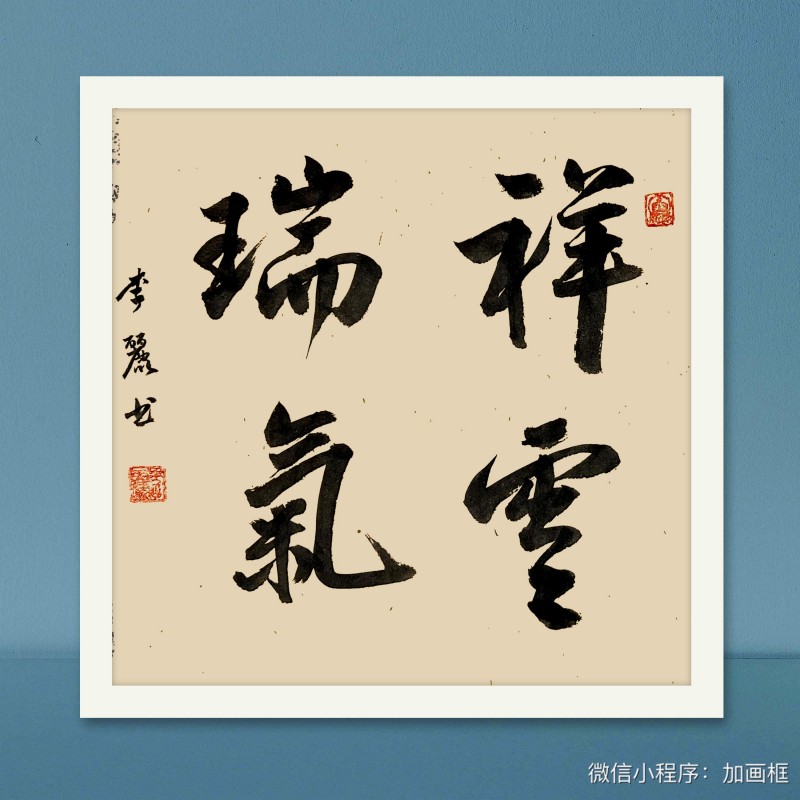 祥雲
瑞氣
李麗书
微信小程序：加画框